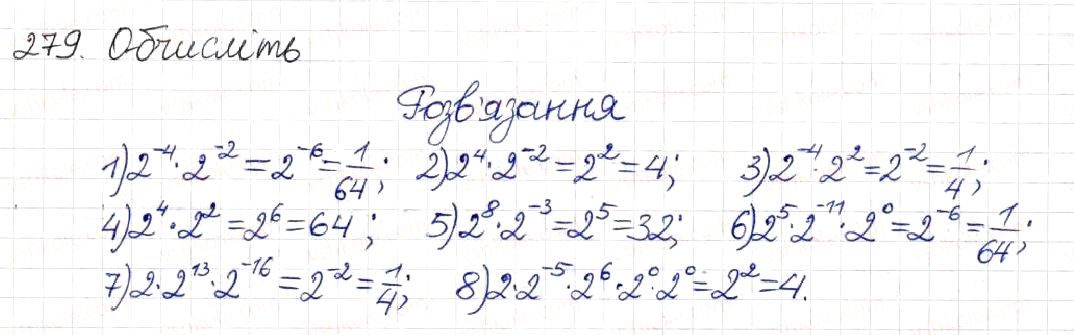 279. Обчисліть
Розв'язання
1) 2⁻⁴ · 2⁻² = 2⁻⁶ = 1/64; 2) 2⁴ · 2⁻² = 2² = 4; 3) 2⁻⁴ · 2² = 2⁻² = 1/4;
4) 2⁴ · 2² = 2⁶ = 64; 5) 2⁸ · 2⁻³ = 2⁵ = 32; 6) 2⁵ · 2⁻¹¹ · 2⁰ = 2⁻⁶ = 1/64;
7) 2 · 2¹³ · 2⁻¹⁶ = 2⁻² = 1/4; 8) 2 · 2⁻⁵ · 2⁶ · 2⁰ · 2⁰ = 2² = 4.